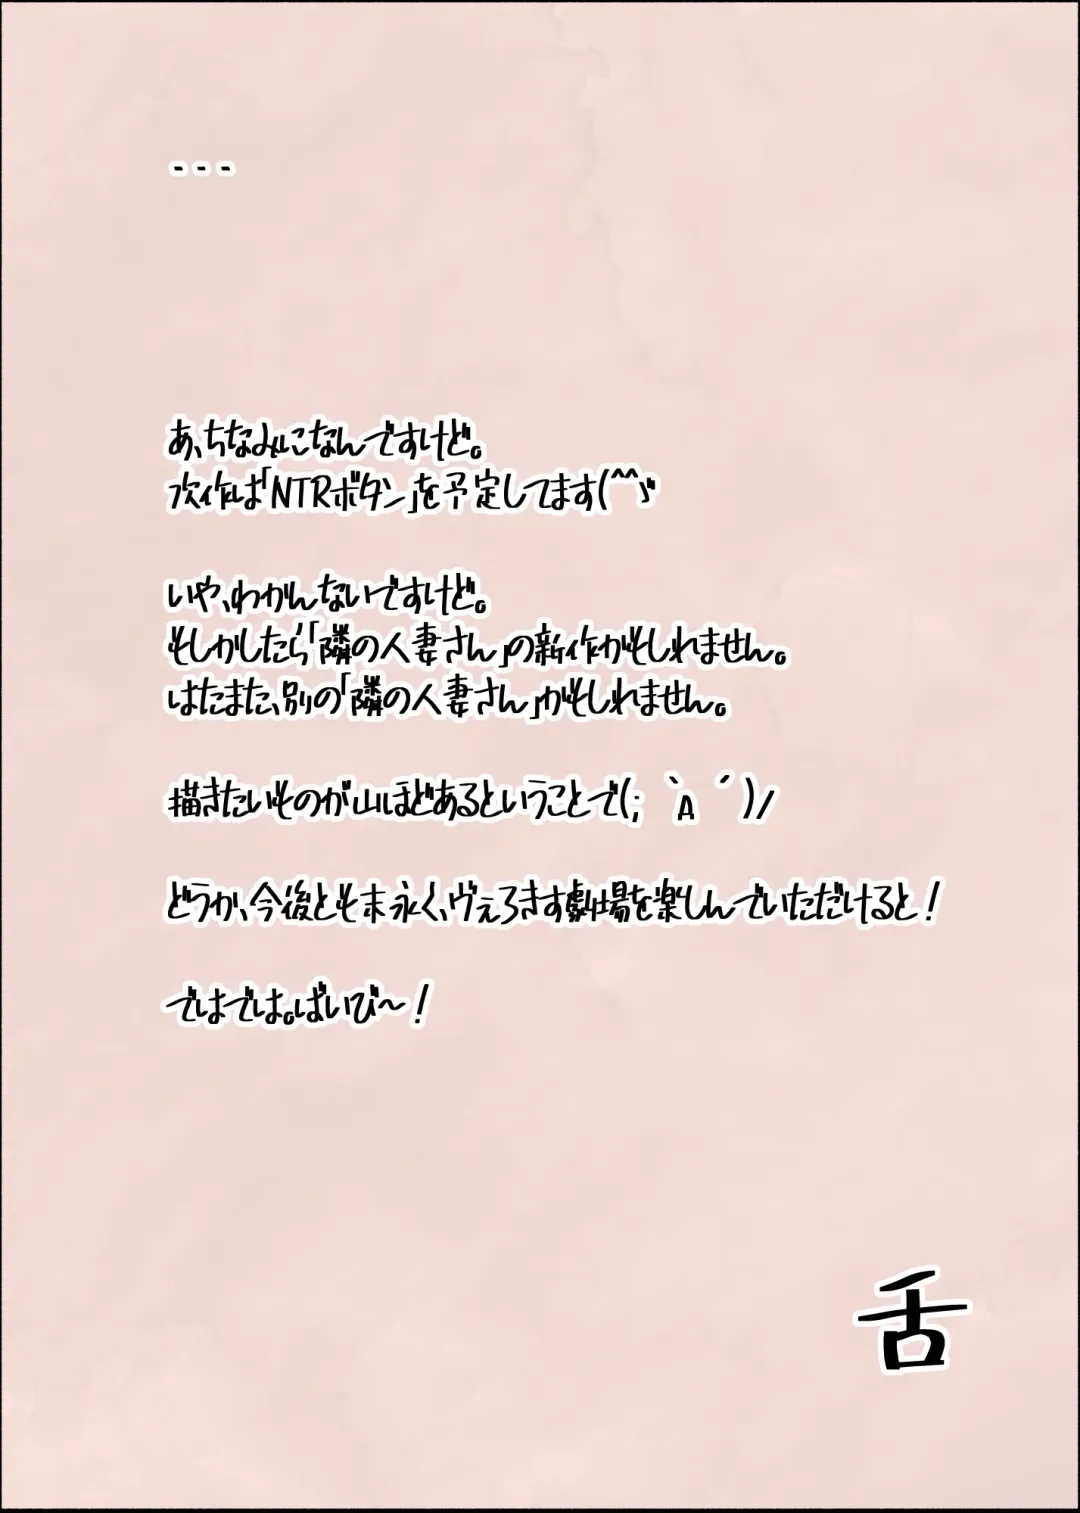 ---
あ、ちなみになんですけど。
次作は「NTRボタン」を予定してます(^^ゞ
いや、わかんないですけど。
もしかしたら「隣の人妻さん」の新作かもしれません。
はたまた、別の「隣の人妻さん」かもしれません。
描きたいものが山ほどあるということで(;｀Д´)/
どうか、今後とも末永く、ヴぇろきす劇場を楽しんでいただけると！
ではでは。ばいび～！
舌